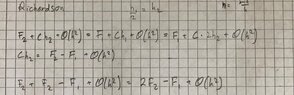 Richardson h₁/2 = h₂
F₂ + Ch₂ + O(h²) = F₁ + Ch₁ + O(h²) = F₁ + C · 2h₂ + O(h²)
Ch₂ = F₂ - F₁ + O(h²)
F₂ + F₂ - F₁ + O(h²) = 2F₂ - F₁ + O(h²)